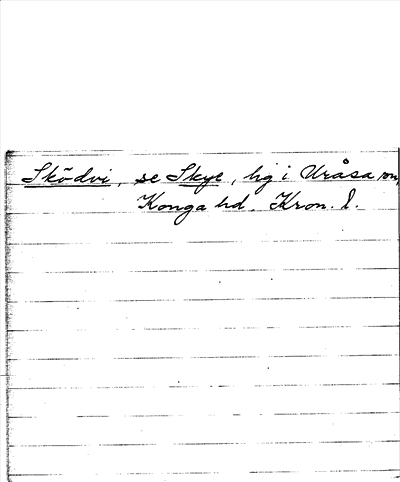 Sködvi, se Skye, lig i Uråsa sn,
Konga hd. Kron. l.